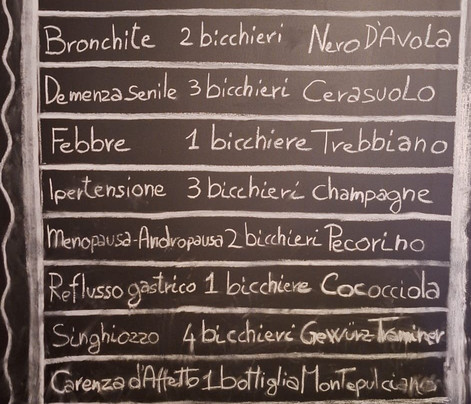 Bronchite 2 bicchieri Nero D'Avola
Demenza senile 3 bicchieri Cerasuolo
Febbre 1 bicchiere Trebbiano
Ipertensione 3 bicchieri Champagne
Menopausa-Andropausa 2 bicchieri Pecorino
Reflusso gastrico 1 bicchiere Cococciola
Singhiozzo 4 bicchieri Gewürz Traminer
Carenza d'Affetto 1 bottiglia Montepulciano